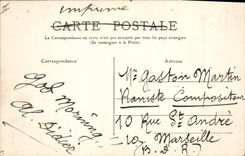 imprimé
CARTE POSTALE
La Correspondance au recto n'est pas acceptée par tous les pays étrangers
(Se renseigner à la Poste)
Correspondance
Adresse
Mr Gaston Martin
Pianiste Compositeur
10 Rue St André
Marseille
(B. D. R.)
God Morning!